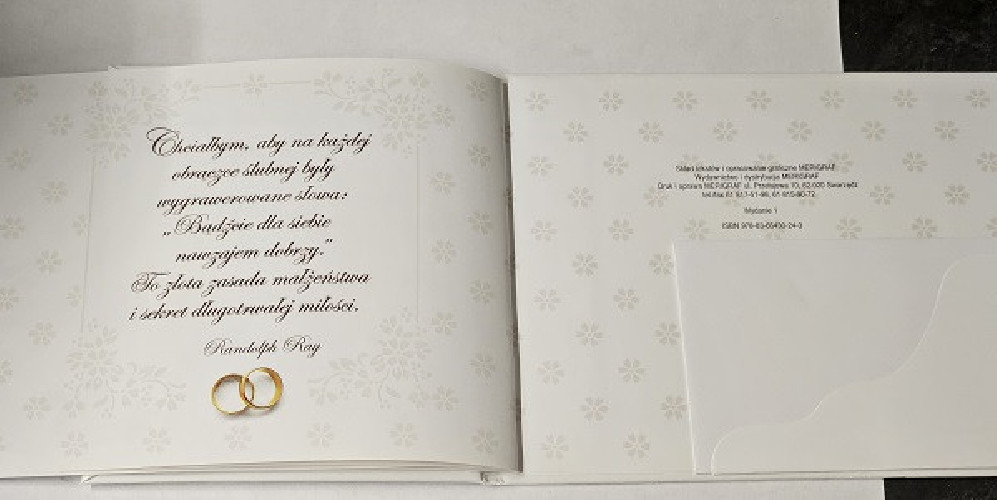 Chciałbym, aby na każdej
obrączce ślubnej były
wygrawerowane słowa:
„Bądźcie dla siebie
nawzajem dobrzy.”
To złota zasada małżeństwa
i sekret długotrwałej miłości.
Randolph Ray
Skład tekstów i opracowanie graficzne MERIGRAF
Wydawnictwo i dystrybucja MERIGRAF
Druk i oprawa MERIGRAF ul.
Wydanie 1
ISBN